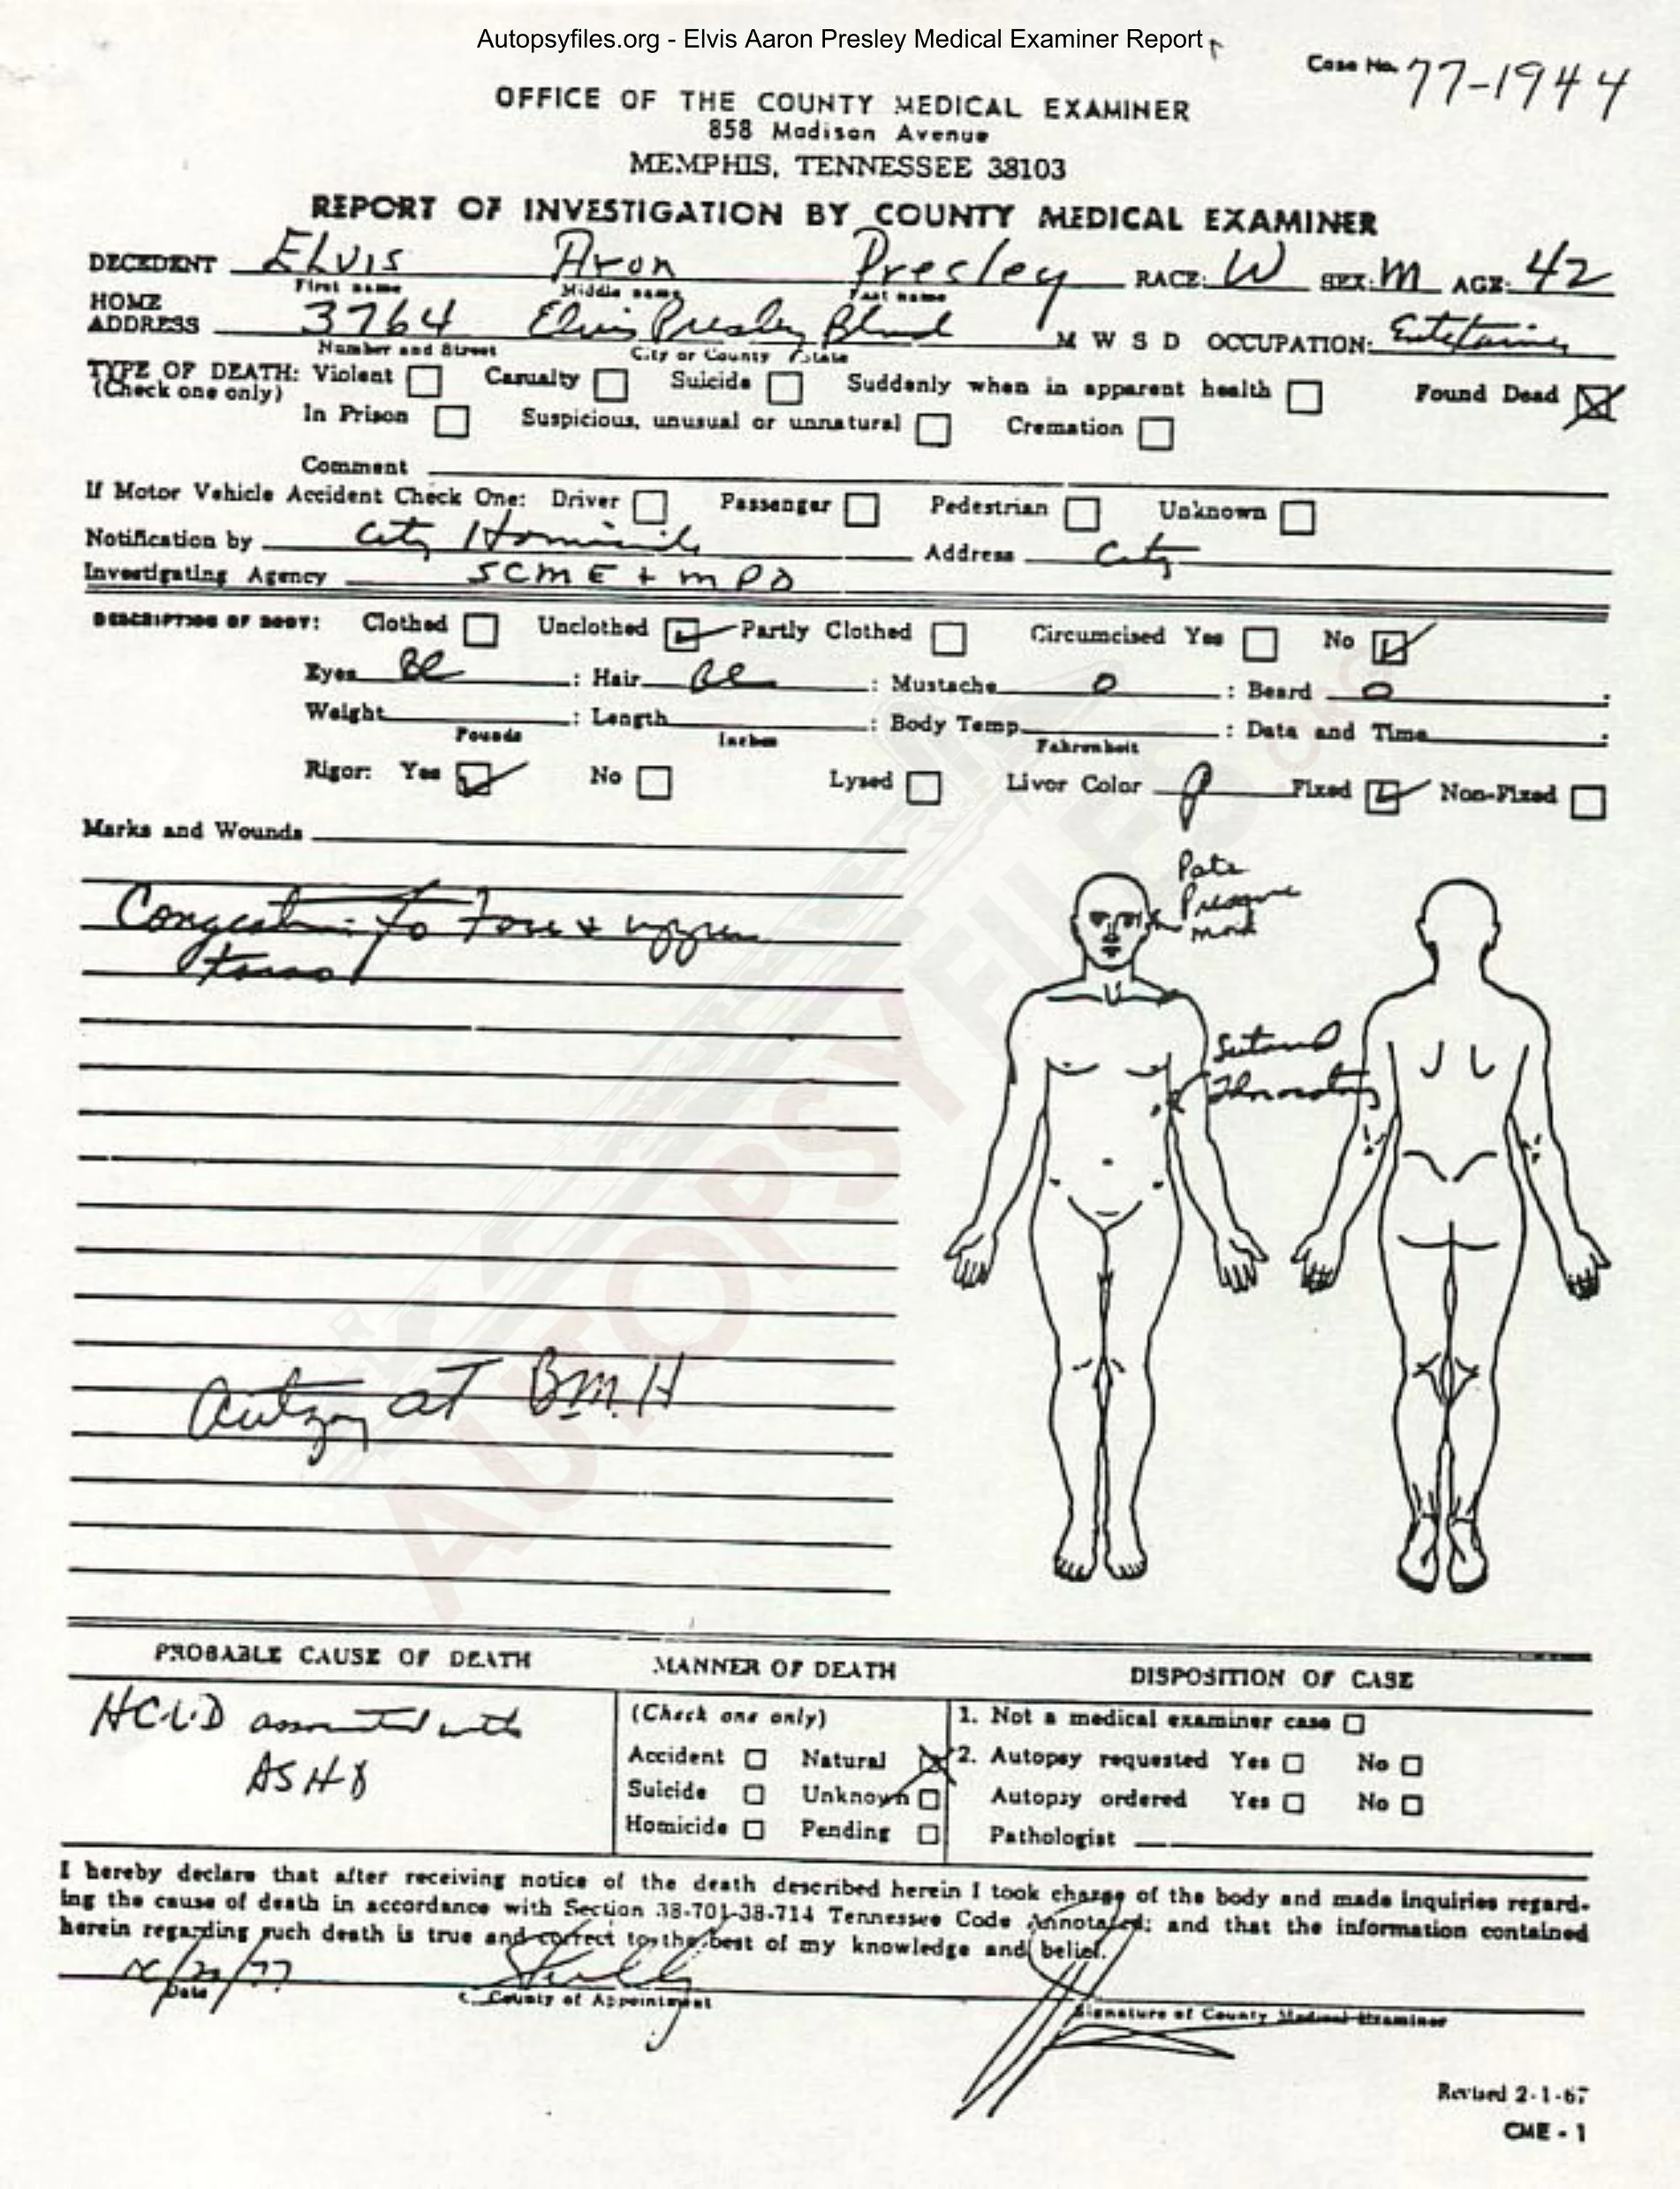 Autopsyfiles.org - Elvis Aaron Presley Medical Examiner Report
Case No. 77-1944
OFFICE OF THE COUNTY MEDICAL EXAMINER
858 Madison Avenue
MEMPHIS, TENNESSEE 38103
REPORT OF INVESTIGATION BY COUNTY MEDICAL EXAMINER
DECEDENT ELVIS Aron Presley RACE: W SEX: M AGE: 42
First name Middle name Last name
HOME ADDRESS 3764 Elvis Presley Blvd M W S D OCCUPATION: Entertainer
Number and Street City or County State
TYPE OF DEATH: Violent Casualty Suicide Suddenly when in apparent health Found Dead
(Check one only)
In Prison Suspicious, unusual or unnatural Cremation
Comment
If Motor Vehicle Accident Check One: Driver Passenger Pedestrian Unknown
Notification by City Homicide Address City
Investigating Agency SCME + MPD
DESCRIPTION OF BODY: Clothed Unclothed Partly Clothed Circumcised Yes No
Eyes Bl : Hair Bl : Mustache 0 : Beard 0 .
Weight : Length : Body Temp : Date and Time .
Pounds Inches Fahrenheit
Rigor: Yes No Lysed Livor Color P Fixed Non-Fixed
Marks and Wounds
Pressure
Congestion to face & upper
torso
Sutured
Autopsy at BMH
PROBABLE CAUSE OF DEATH MANNER OF DEATH DISPOSITION OF CASE
HCVD associated with
ASHD
(Check one only)
Accident Natural
Suicide Unknown
Homicide Pending
1. Not a medical examiner case
2. Autopsy requested Yes No
Autopsy ordered Yes No
Pathologist
I hereby declare that after receiving notice of the death described herein I took charge of the body and made inquiries regard-
ing the cause of death in accordance with Section 38-701-38-714 Tennessee Code Annotated; and that the information contained
herein regarding such death is true and correct to the best of my knowledge and belief.
Shelby
Date County of Appointment Signature of County Medical Examiner
Revised 2-1-67
CME - 1
AUTOPSYFILES.ORG